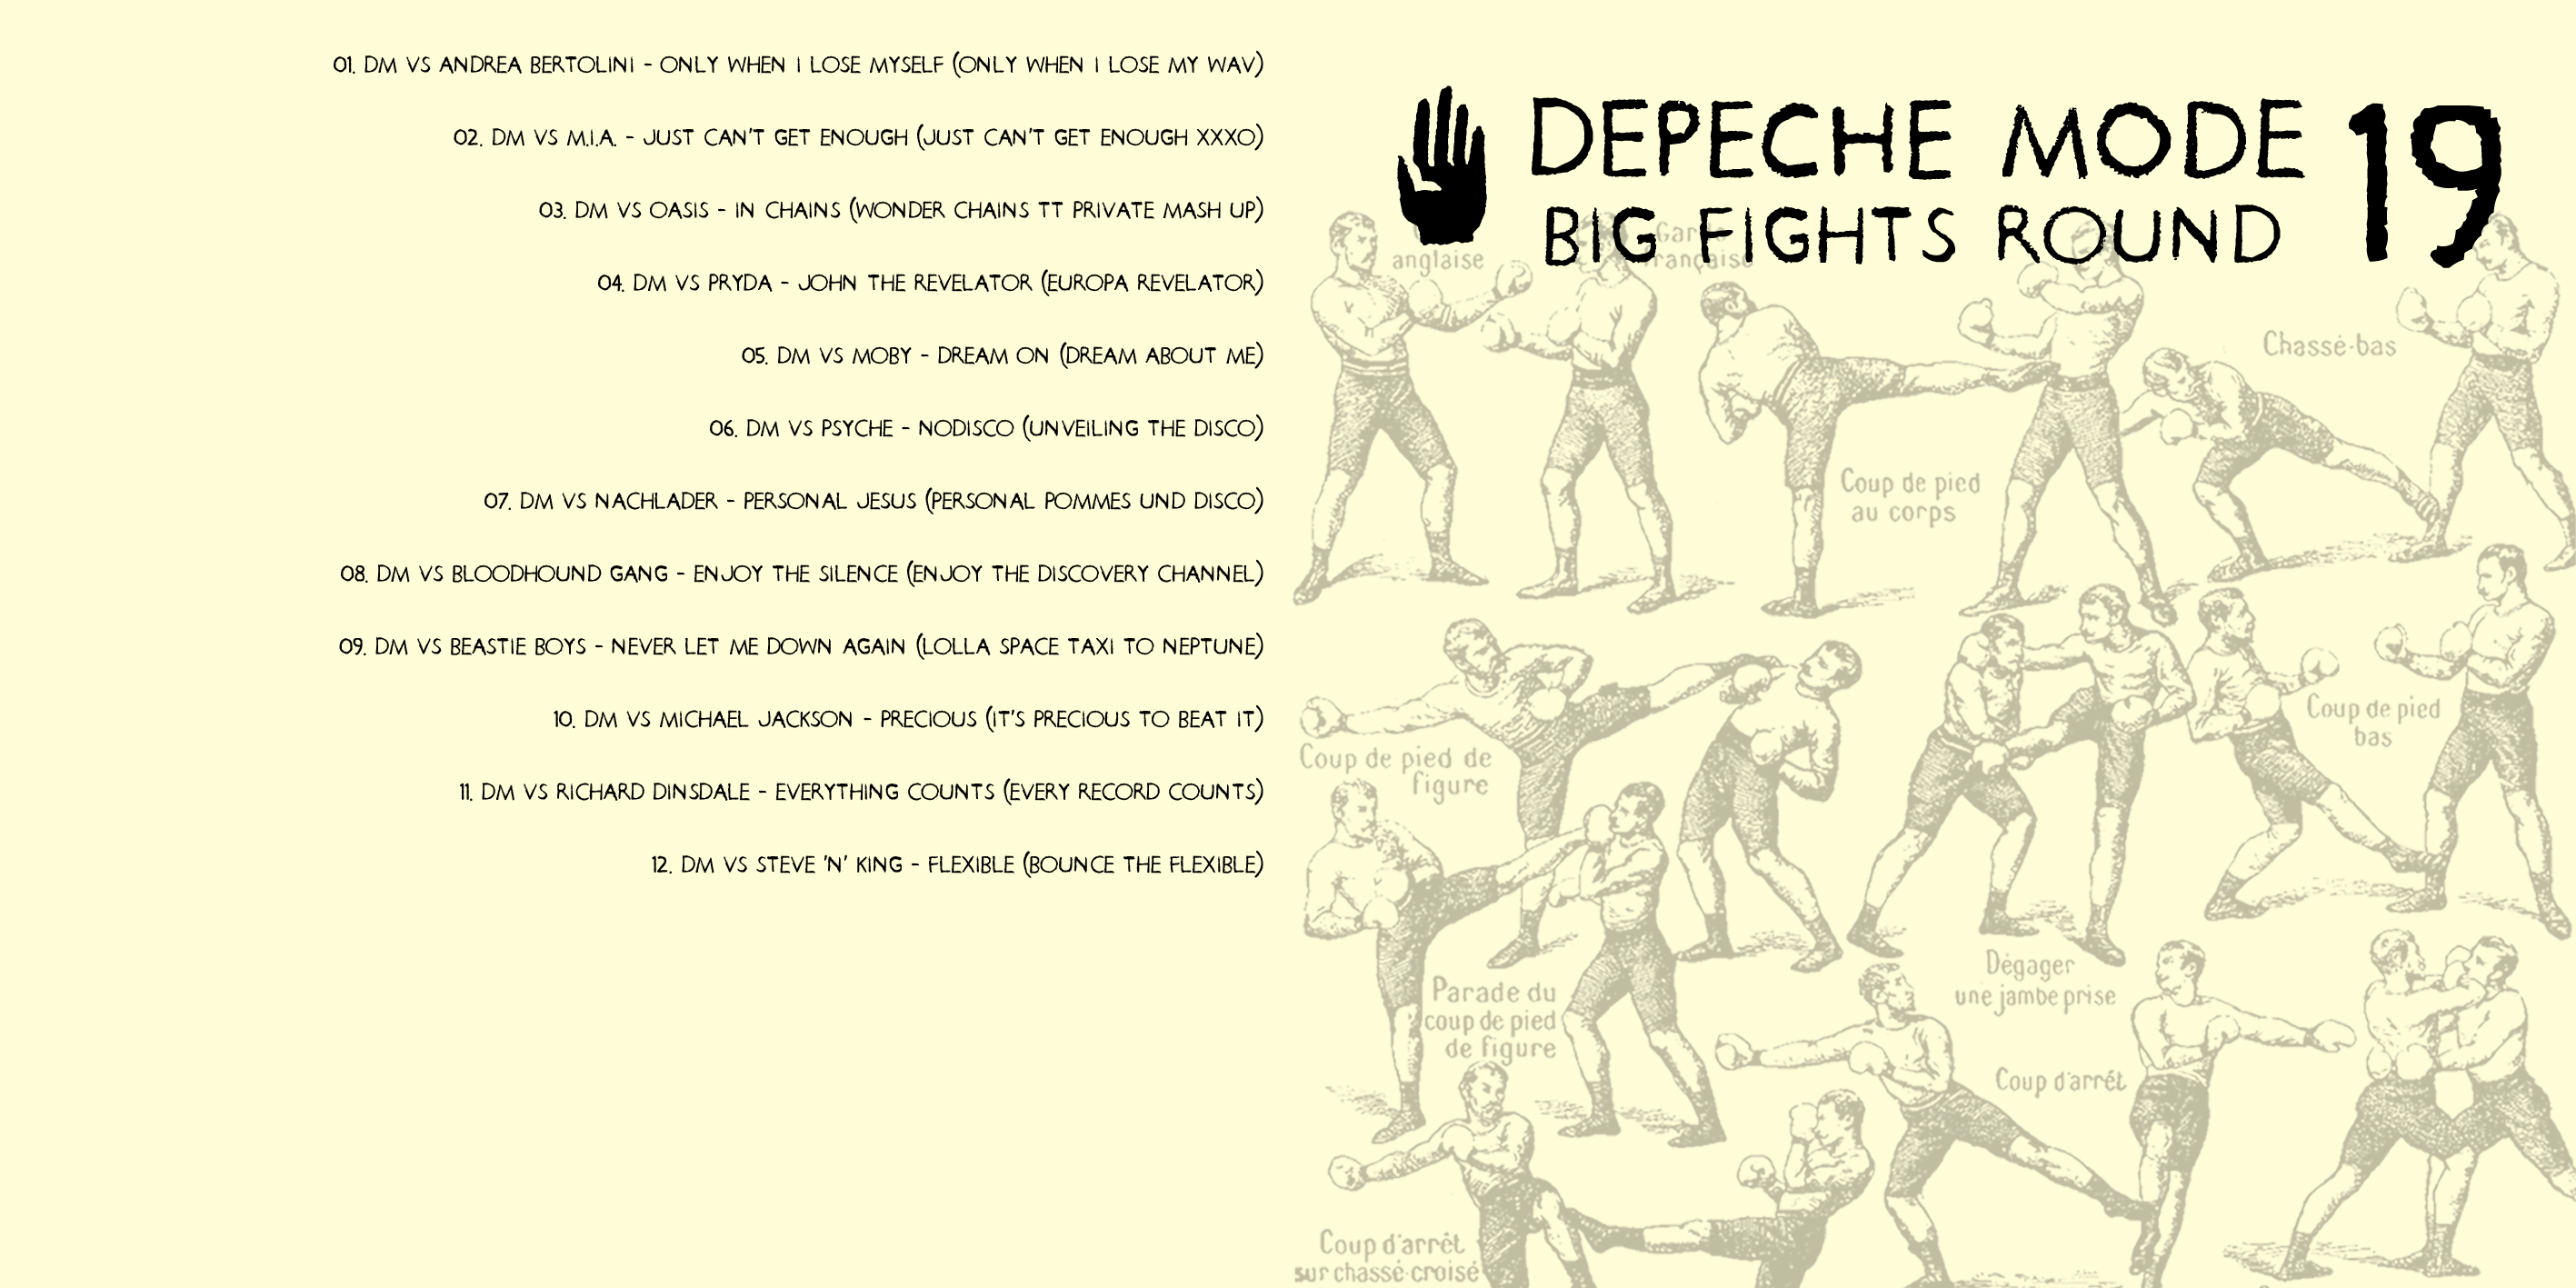 01. DM VS ANDREA BERTOLINI - ONLY WHEN I LOSE MYSELF (ONLY WHEN I LOSE MY WAV)
02. DM VS M.I.A. - JUST CAN'T GET ENOUGH (JUST CAN'T GET ENOUGH XXXO)
03. DM VS OASIS - IN CHAINS (WONDER CHAINS TT PRIVATE MASH UP)
04. DM VS PRYDA - JOHN THE REVELATOR (EUROPA REVELATOR)
05. DM VS MOBY - DREAM ON (DREAM ABOUT ME)
06. DM VS PSYCHE - NODISCO (UNVEILING THE DISCO)
07. DM VS NACHLADER - PERSONAL JESUS (PERSONAL POMMES UND DISCO)
08. DM VS BLOODHOUND GANG - ENJOY THE SILENCE (ENJOY THE DISCOVERY CHANNEL)
09. DM VS BEASTIE BOYS - NEVER LET ME DOWN AGAIN (LOLLA SPACE TAXI TO NEPTUNE)
10. DM VS MICHAEL JACKSON - PRECIOUS (IT'S PRECIOUS TO BEAT IT)
11. DM VS RICHARD DINSDALE - EVERYTHING COUNTS (EVERY RECORD COUNTS)
12. DM VS STEVE 'N' KING - FLEXIBLE (BOUNCE THE FLEXIBLE)
DEPECHE MODE 19
BIG FIGHTS ROUND
anglaise
Garde
française
Chassé-bas
Coup de pied
au corps
Coup de pied
bas
Coup de pied de
figure
Parade du
coup de pied
de figure
Dégager
une jambe prise
Coup d'arrêt
Coup d'arrêt
sur chassé-croisé